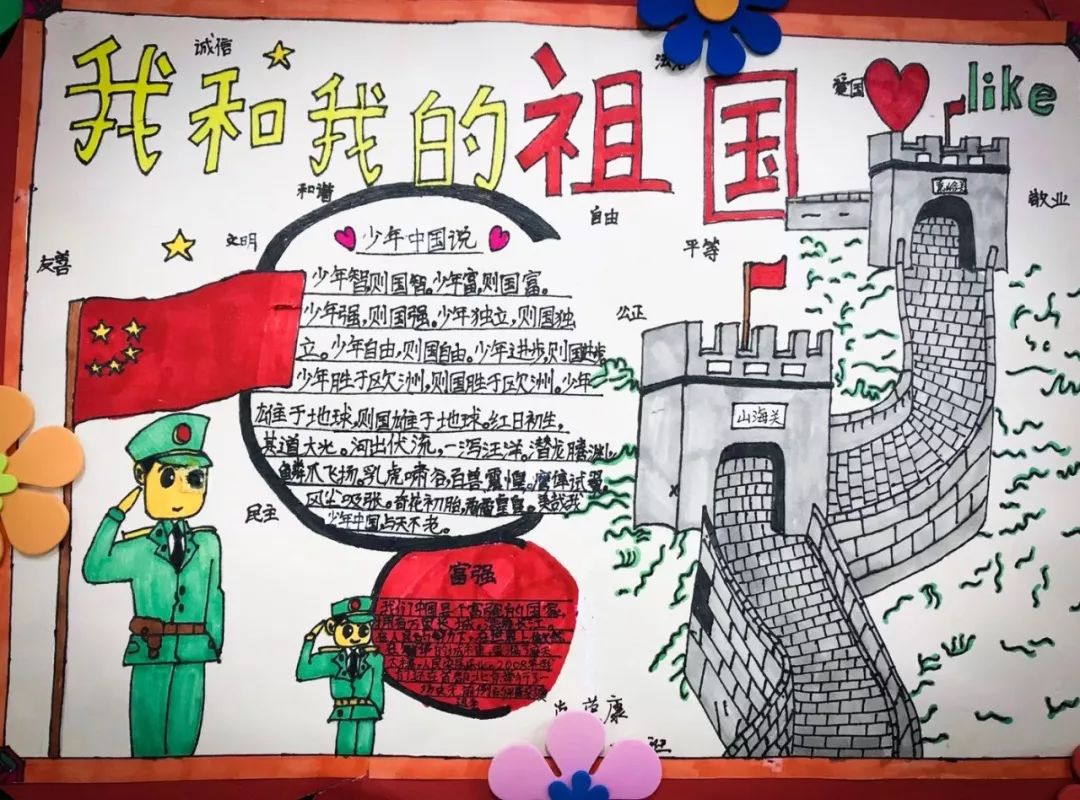 我和我的祖国
诚信
爱国
like
敬业
和谐
自由
平等
文明
友善
公正
民主
少年中国说
少年智,则国智。少年富,则国富。
少年强,则国强。少年独立,则国独
立。少年自由,则国自由。少年进步,则国进步
少年胜于欧洲,则国胜于欧洲。少年
雄于地球,则国雄于地球。红日初生,
其道大光。河出伏流,一泻汪洋。潜龙腾渊,
鳞爪飞扬。乳虎啸谷,百兽震惶。鹰隼试翼,
风尘吸张。奇花初胎,矞矞皇皇。美哉我
少年中国,与天不老。
山海关
富强
我们中国是个富强的国家,